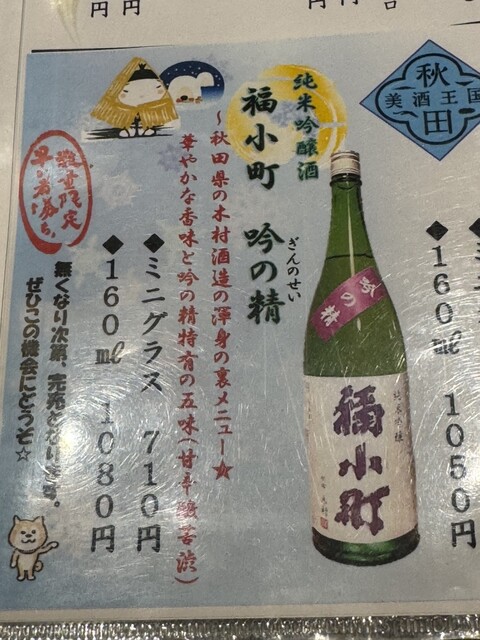 円
円
円
円
台
秋
美酒王国
田
純米吟醸酒
福小町 吟の精
ぎんのせい
～秋田県の木村酒造の渾身の裏メニュー★
華やかな香味と吟の精特有の五味(甘辛酸苦渋)
◆ミニグラス 710円
◆160㎖ 1080円
数量限定
早い者勝ち!
無くなり次第、完売となります。
ぜひこの機会にどうぞ☆
吟の精
純米吟醸
福小町
◆160㎖ 1050円